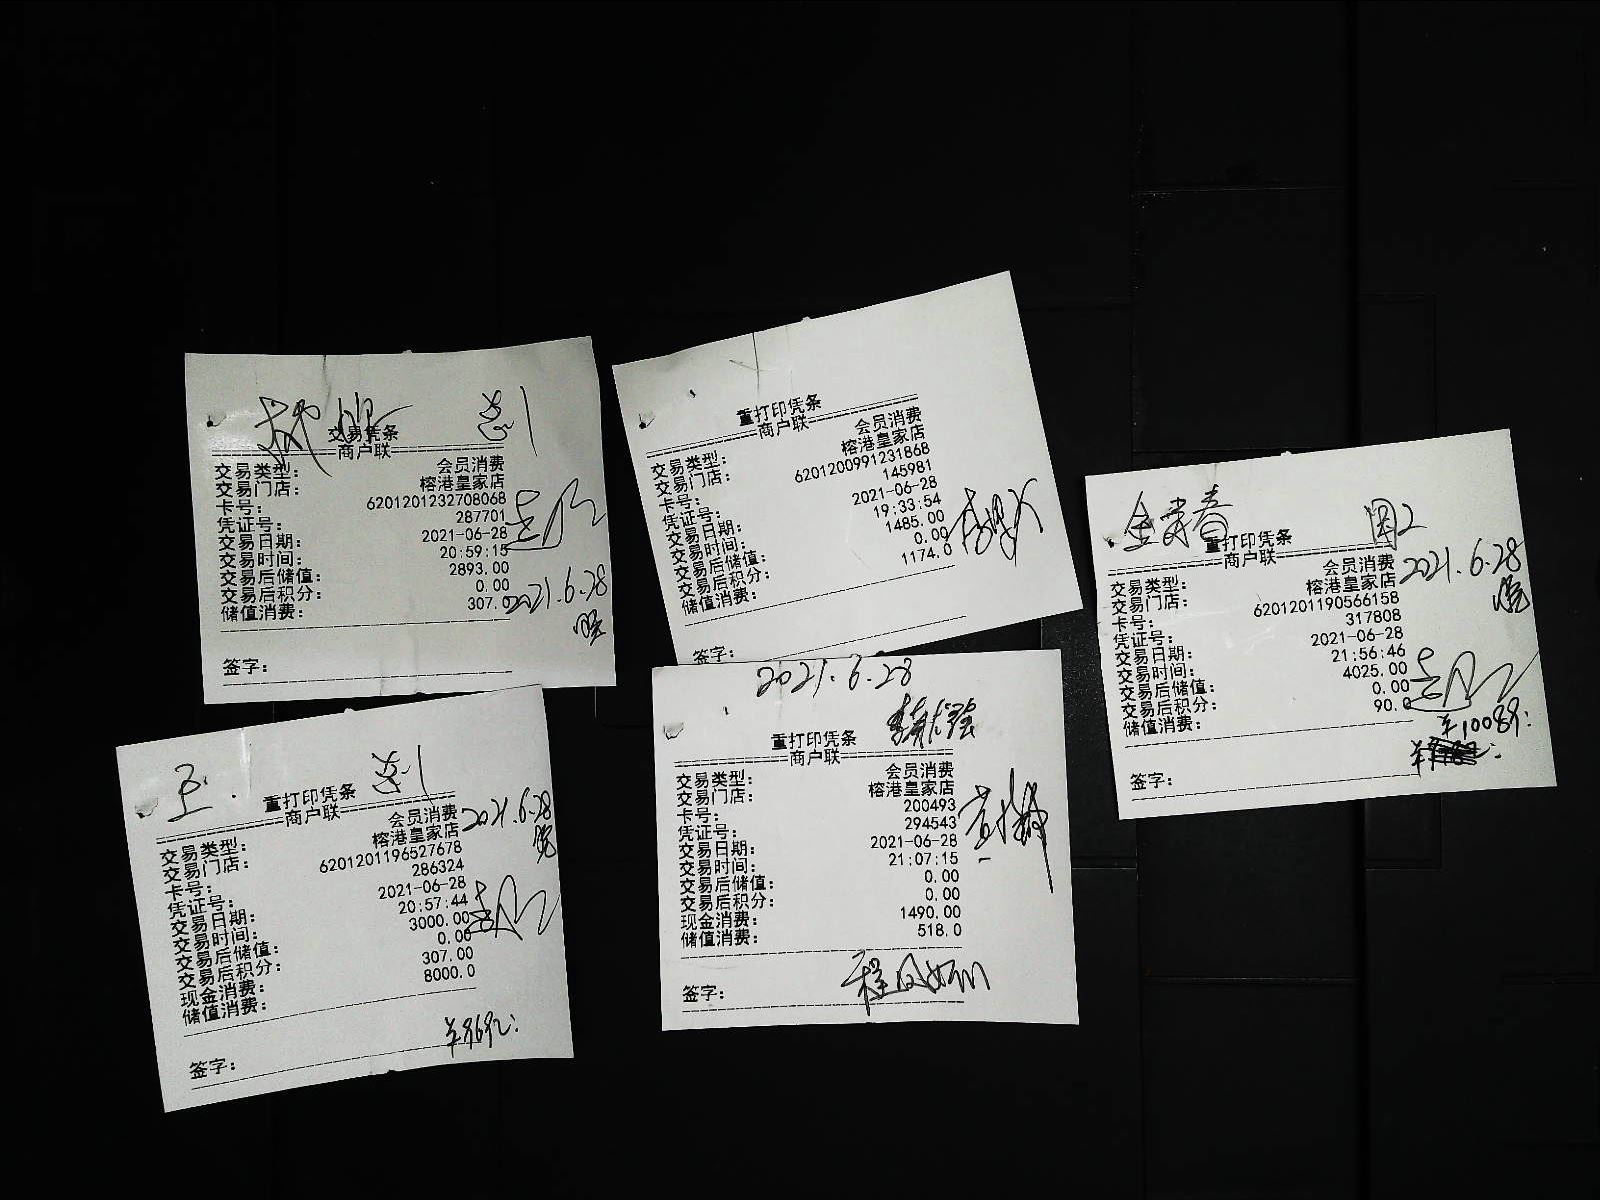 交易凭条
商户联
交易类型： 会员消费
交易门店： 榕港皇家店
卡号： 6201201232708068
凭证号： 287701
交易日期： 2021-06-28
交易时间： 20:59:15
交易后储值： 2893.00
交易后积分： 0.00
储值消费： 307.0
2021.6.28
签字：
重打印凭条
商户联
交易类型： 会员消费
交易门店： 榕港皇家店
卡号： 6201200991231868
凭证号： 145981
交易日期： 2021-06-28
交易时间： 19:33:54
交易后储值： 1485.00
交易后积分： 0.00
储值消费： 1174.0
签字：
金春 园2
重打印凭条
商户联
2021.6.28
交易类型： 会员消费
交易门店： 榕港皇家店
卡号： 6201201190566158
凭证号： 317808
交易日期： 2021-06-28
交易时间： 21:56:46
交易后储值： 4025.00
交易后积分： 0.00
储值消费： 90.0
签字：
王
重打印凭条
商户联
2021.6.28
交易类型： 会员消费
交易门店： 榕港皇家店
卡号： 6201201196527678
凭证号： 286324
交易日期： 2021-06-28
交易时间： 20:57:44
交易后储值： 3000.00
交易后积分： 0.00
现金消费： 307.00
储值消费： 8000.0
签字：
2021.6.28
重打印凭条
商户联
交易类型： 会员消费
交易门店： 榕港皇家店
卡号： 200493
凭证号： 294543
交易日期： 2021-06-28
交易时间： 21:07:15
交易后储值： 0.00
交易后积分： 0.00
现金消费： 1490.00
储值消费： 518.0
签字：